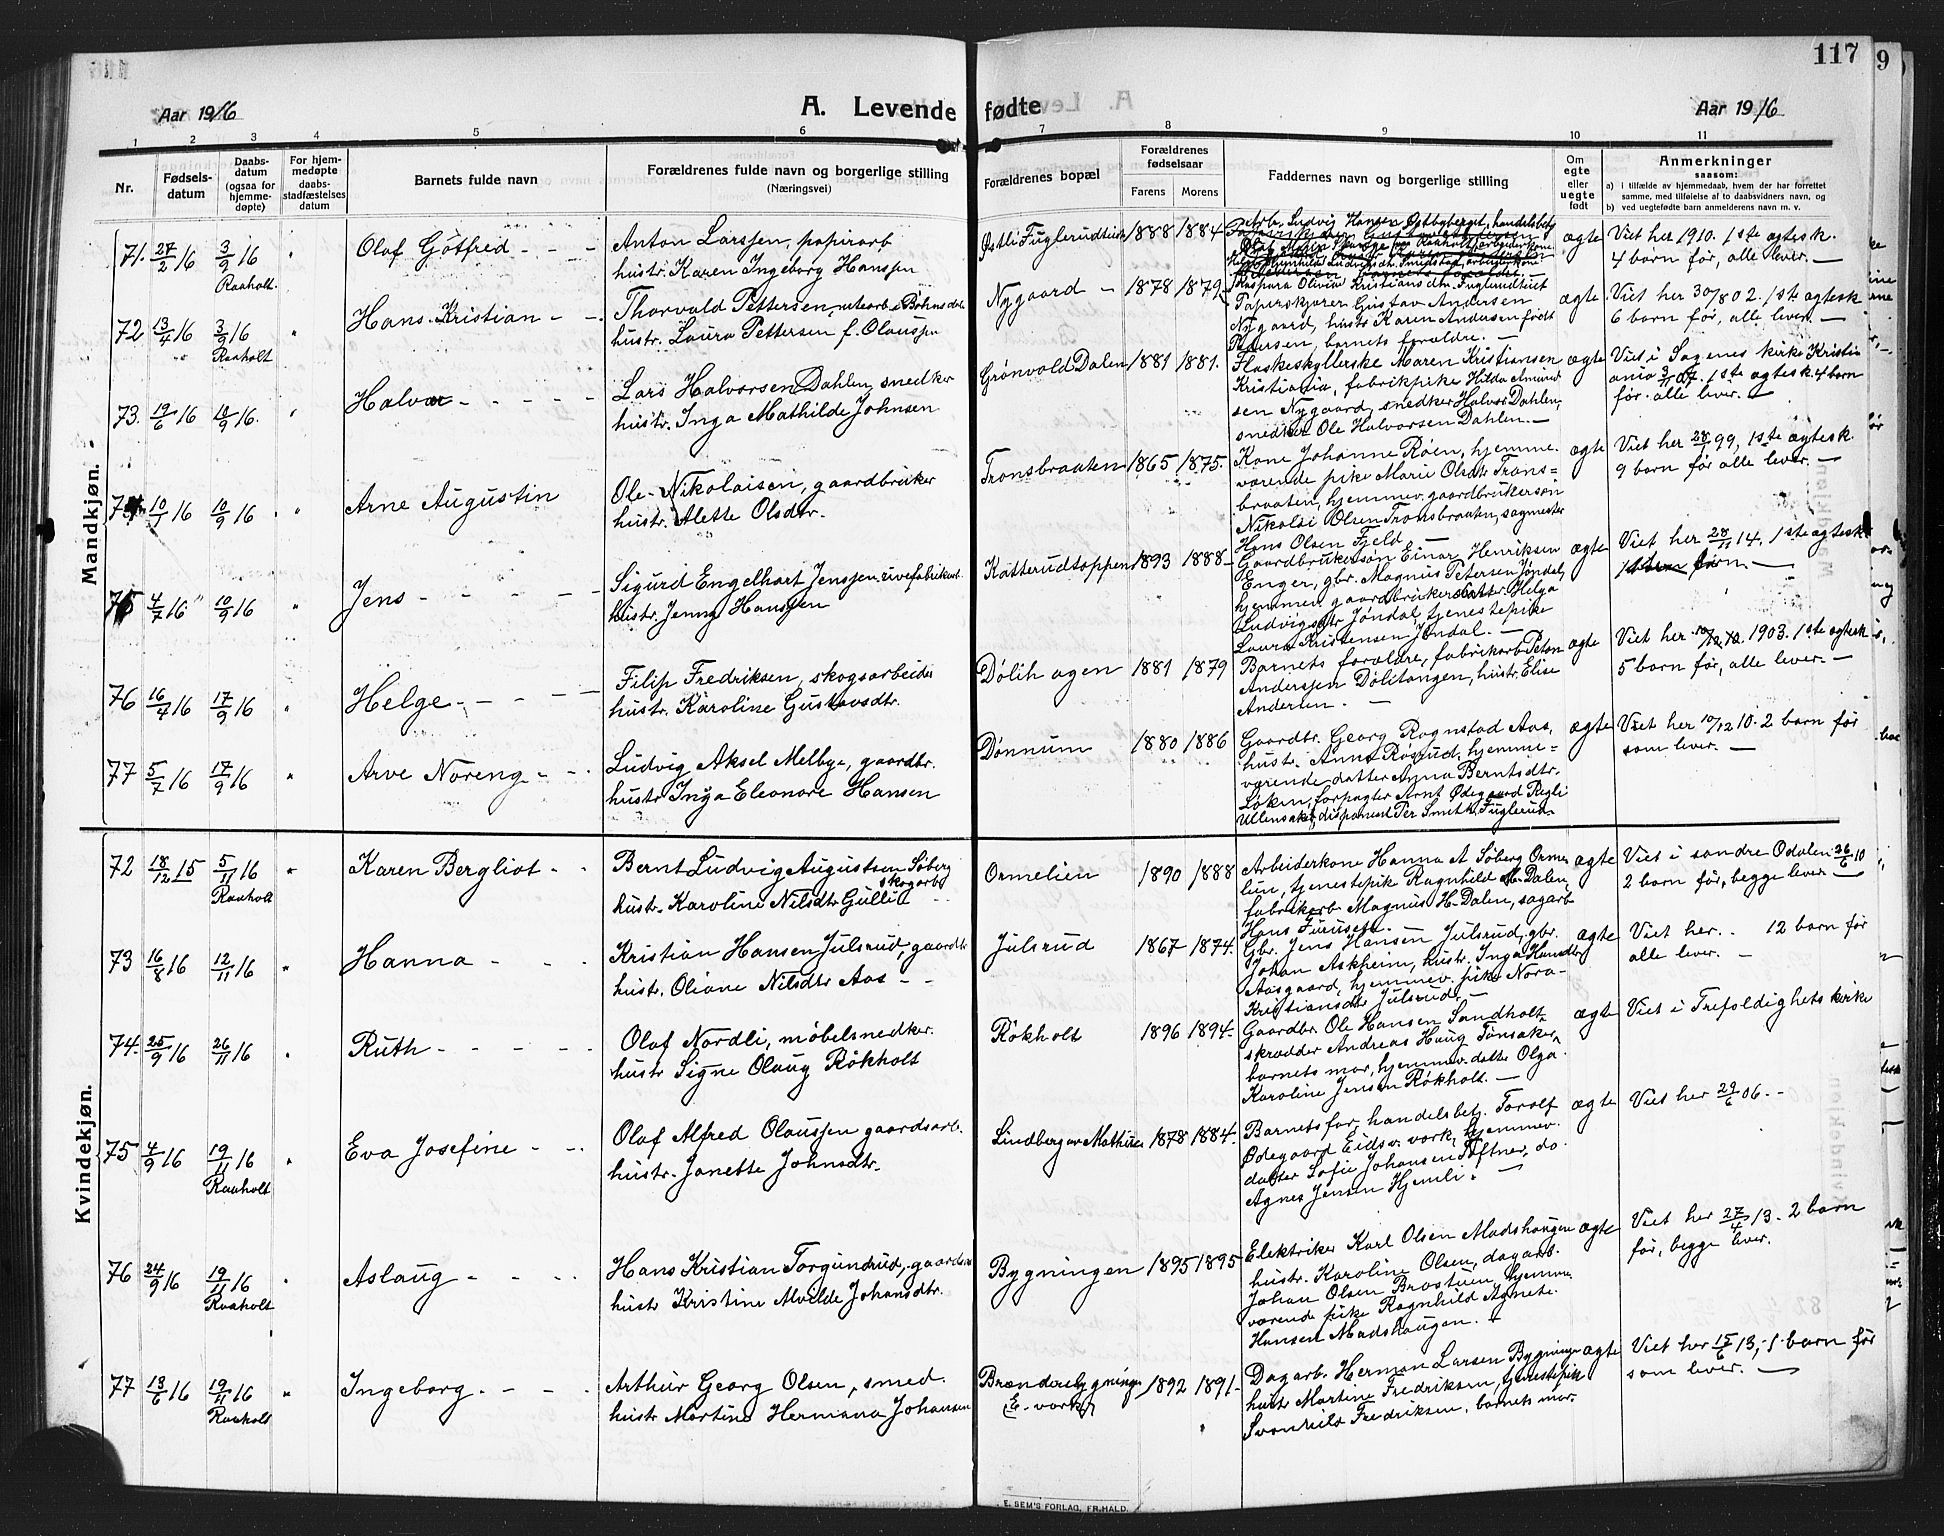 117
9
Aar 1916
A. Levende fødte
Aar 1916
1 2 3 4 5 6 7 8 9 10 11
Nr.
Fødsels-
datum
Daabs-
datum
(ogsaa for
hjemme-
døpte)
For hjem-
medøpte
daabs-
stadfæstelses
datum
Barnets fulde navn
Forældrenes fulde navn og borgerlige stilling
(Næringsvei)
Forældrenes bopæl
Forældrenes
fødselsaar
Farens Morens
Faddernes navn og borgerlige stilling
Om
egte
eller
uegte
født
Anmerkninger
saasom:
a) i tilfælde av hjemmedaab, hvem der har forrettet
samme, med tilføielse af to daabsvidners navn, og
b) ved uegtefødte barn anmelderens navn m. v.
Mandkjøn.
71. 27/2 16 3/9 16 Raaholt.
Olaf Götfred
Anton Larssen, papirarb
hustr. Karen Ingeborg Hanssen
1888 1884
Kaspara Olivia Kristiansdtr. Fuglerudtuet
ægte
Viet her 1910. 1ste ægtesk.
4 barn før, alle lever.
72 13/4 16 3/9 16 Raaholt
Hans Kristian
Thorvald Pettersen, utearb. Böhnsdal.
hustr. Laura Pettersen f. Olaussen
Nygaard
1878 1879
Papirskjærer Gustav Andersen
Nygaard, hustr Karen Andersen født
Petersen, barnets forældre.
ægte
Viet her 30/8 02. 1ste ægtesk
6 barn før, alle lever.
73. 19/6 16 10/9 16.
Halvor
Lars Halvorsen Dahlen, snedker
hustr. Inga Mathilde Johnsen
Grönvold Dalen
1881 1881.
Flaskeskyllerske Maren Kristiansen
Kristiania, fabrikpike Hilda Amund
sen Nygaard, snedker Halvor Dahlen,
snedker Ole Halvorsen Dahlen.
ægte
Viet i Sagenes kirke Kristi
ania 3/11 07. 1ste ægtesk. 4 barn
før. alle lever.
74 10/7 16 10/9 16
Arne Augustin
Ole Nikolaisen, gaardbruker
hustr. Alette Olsdtr.
Tronsbraaten
1865 1875.
Kone Johanne Röen, hjemme.
værende pike Marie Olsdtr Trons=
braaten, hjemmev. gaardbrukersön
Nikolai Olsen Tronsbraaten, sagmester
Hans Olsen Fjeld
ægte
Viet her 28/1 99, 1ste ægtesk.
9 barn før alle lever.
75 4/7 16 10/9 16
Jens
Sigurd Engelhart Jenssen, rivefabrikarb.
hustr. Jenny Hanssen
Katterudtoppen
1893 1888
Gaardbrukersön Einar Henriksen
Enger, gbr. Magnus Petersen Jöndal,
hjemmev. gaardbrukerdatter Helga
Ludvigsdtr Jöndal, tjenestepike
Laura Kristensen Jöndal.
ægte
Viet her 28/11 14. 1ste ægtesk
76 16/4 16 17/9 16
Helge
Filip Fredriksen, skogsarbeider
hustr. Karoline Gustavsdtr.
1881 1879
Barnets forældre, fabrikarb. Peton
Anderssen Dölitangen, hustr. Elise
Andersen.
ægte
1903. 1ste ægtesk
5 barn før, alle lever.
77 5/7 16 17/9 16
Arve Noreng
Ludvig Aksel Melbye, gaardbr.
hustr Inga Eleonore Hansen
Dönnum
1880 1886
Gaardbr. Georg Rognstad Aas,
hustr. Anna Rösrud, hjemme=
værende datter Anna Berntsdtr.
Löken, forpagter Arnt Ödegaard Regli
Ullensaker, disponent Per Smith, Fuglerud.
ægte
Viet her 10/12 10. 2 barn før
som lever.
Kvindekjøn.
72 18/12 15 5/11 16 Raaholt
Karen Bergliot
Bernt Ludvig Augustsen Söberg
skogarb
hustr. Karoline Nilsdtr Gulli
Ormelien
1890 1888
Arbeiderkone Hanna A Söberg Orme
lien, tjenestepike Ragnhild M. Dalen,
fabrikarb Magnus H. Dalen, sagarb
Hans Furuseth.
ægte
Viet i søndre Odalen 26/6 10
2 barn før, begge lever
73 16/8 16 12/11 16
Hanna
Kristian Hansen Julsrud, gaardbr
hustr. Oliane Nilsdtr Aas
Julsrud
1867 1874.
Gbr. Jens Hansen Julsrud, gbr.
Johan Askheim, hustr. Inga Hansdtr
Aasgaard, hjemmev. pike Nora
Kristiansdtr Julsrud.
ægte
Viet her. 12 barn før
alle lever.
74. 25/9 16 26/11 16
Ruth
Olaf Nordli, möbelsnedker.
hustr Signe Olaug Rökholt
Rökholt
1896 1894.
Gaardbr. Ole Hansen Sandholt
skrædder Andreas Haug Tönsaker
barnets mor, hjemmev. datter Olga
Karoline Jensen Rökholt.
ægte
Viet i Trefoldighets kirke
75 4/9 16 19/11 16 Raaholt
Eva Josefine
Olaf Alfred Olaussen gaardsarb.
hustr. Janette Johnsdtr.
1878 1884.
Barnets far, handelsbetj. Torolf
Ödegaard Eidsv. værk, hjemmev.
datter Sofie Johansen Töftner, do
Agnes Jensen Hjemli.
ægte
Viet her 29/6 06.
76 24/9 16 19/11 16 Raaholt
Aslaug
Hans Kristian Torgundrud, gaardsarb
hustr Kristine Alvilde Johansdtr.
Bygningen
1895 1895
Elektriker Karl Olsen Madshaugen
hustr. Karoline Olsen, dagarb.
Johan Olsen Brostuen, hjemme
værende pike Ragnhild Agnete
Hansen Madshaugen.
ægte
Viet her 27/4 13. 2 barn
før, begge lever.
77 13/6 16 19/11 16 Raaholt
Ingeborg
Arthur Georg Olsen, smed.
hustr Martine Hermana Johansen
Brænderibygningen
E. værk
1892 1891.
Dagarb. Herman Larsen Bygningen
hustr Martine Fredriksen, tjenestepik
Svanhild Fredriksen, barnets mor.
ægte
Viet her 15/6 13, 1 barn før
som lever.
E. SEM'S FORLAG, FR.HALD.